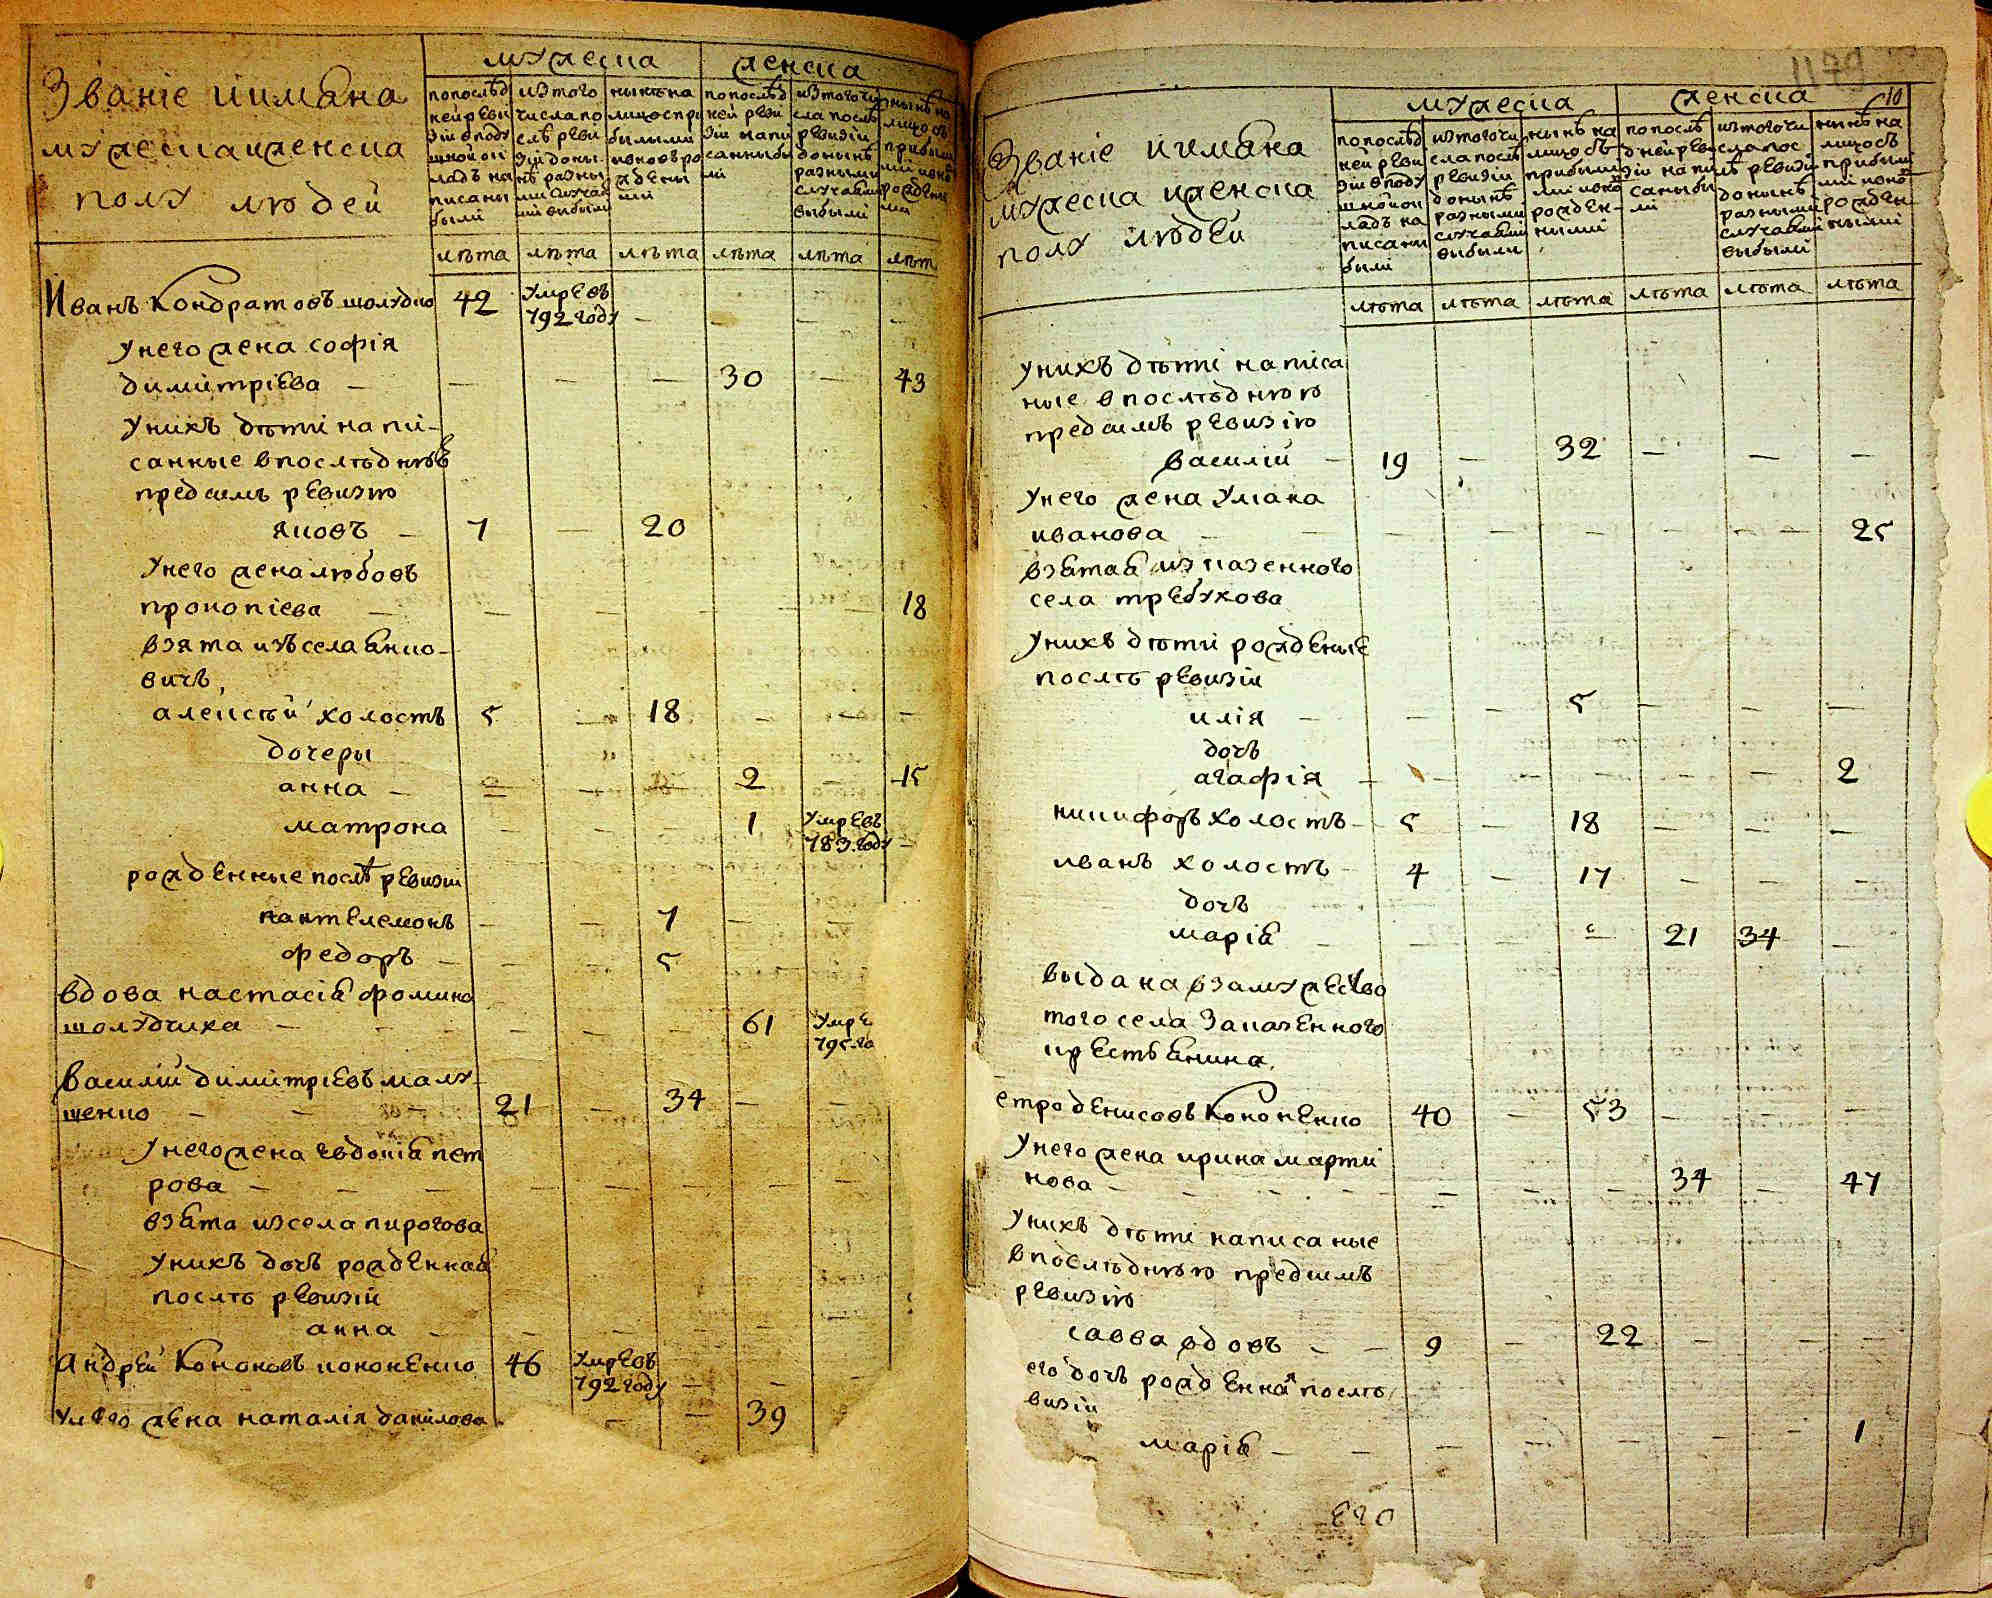 Званіе иимяна
мужеска иженска
полу людей
мужеска
женска
попослѣд
ней реви
зіи вподу
шной ок
ладъ на
писаны
были
изтого
числа по
слѣ реви
зіи доны
нѣ разны
ми случая
ми выбыли
нынѣ на
лицо спри
былыми
иноворо
жденны
ми
попослѣд
ней реви
зіи напи
санны бы
ли
изтого чи
сла послѣ
ревизіи
донынѣ
разными
случаями
выбыли
нынѣ на
лицо съ
прибыл
лѣта лѣта лѣта лѣта лѣта лѣт
Иванъ Кондратовъ шолудко 42 умре въ
792 году — — — —
унего жена софія
димитріева — — — — 30 — 43
унихъ дѣти напи-
санные впослѣднюю
предсимъ ревизію
яковъ — 7 — 20
унего жена любовъ
прокопіева — — — — — — 18
взята изъ села янко-
вичъ
алексѣй холостъ 5 — 18 — — —
дочеры
анна — — — — 2 — 15
матрона — — — 1 умре въ
783 году —
рожденные послѣ ревизіи
пантелемонъ — — 7 — —
федоръ — — — 5
вдова настасія фомина
шолудчиха — — — — 61 умре
795 го
василій димитріевъ малу-
шенко — — — 21 — 34 — —
унего жена евдокія пет
рова — — — — — — — —
взята изсела пирогова
унихъ дочъ рожденная
послѣ ревизіи
анна — — — — — —
андрей Кононовъ кононенко 46 умре въ
792 году — — —
унего жена наталія данилова — — 39
1179
10
Званіе иимяна
мужеска иженска
полу людей
мужеска
женска
попослѣд
ней реви
зіи вподу
шной ок
ладъ на
писаны
были
изтого чи
сла послѣ
ревизіи
донынѣ
разными
случаями
выбыли
нынѣ на
лицо съ
прибылы
ми ново
рожден-
ными
попослѣ
дней реви
зіи напи
саны бы
ли
изтого чи
сла пос
лѣ ревизіи
донынѣ
разными
случаями
выбыли
нынѣ на
лицо съ
прибылы
ми ново
рожден
ными
лѣта лѣта лѣта лѣта лѣта лѣта
унихъ дѣти написа
ные впослѣднюю
предсимъ ревизію
василій — 19 — 32 — — —
унего жена уліана
иванова — — — — — — — 25
взятая изказенного
села требухова
унихъ дѣти рожденые
послѣ ревизіи
илія — — — 5 — — —
дочъ
агафія — — — — — — 2
никифоръ холостъ — 5 — 18 — — —
иванъ холостъ — 4 — 17 — — —
дочъ
марія — — — — 21 34 —
выдана взамужество
того села заказенного
крестянина
етро денисовъ Кононенко 40 — 53 — — —
унего жена ирина марти
нова — — — — — — — 34 — 47
унихъ дѣти написаные
впослѣднюю предсимъ
ревизію
савва вдовъ — — 9 — 22 — — —
его дочъ рожденная послѣ
визіи
марія — — — — — — — 1
его